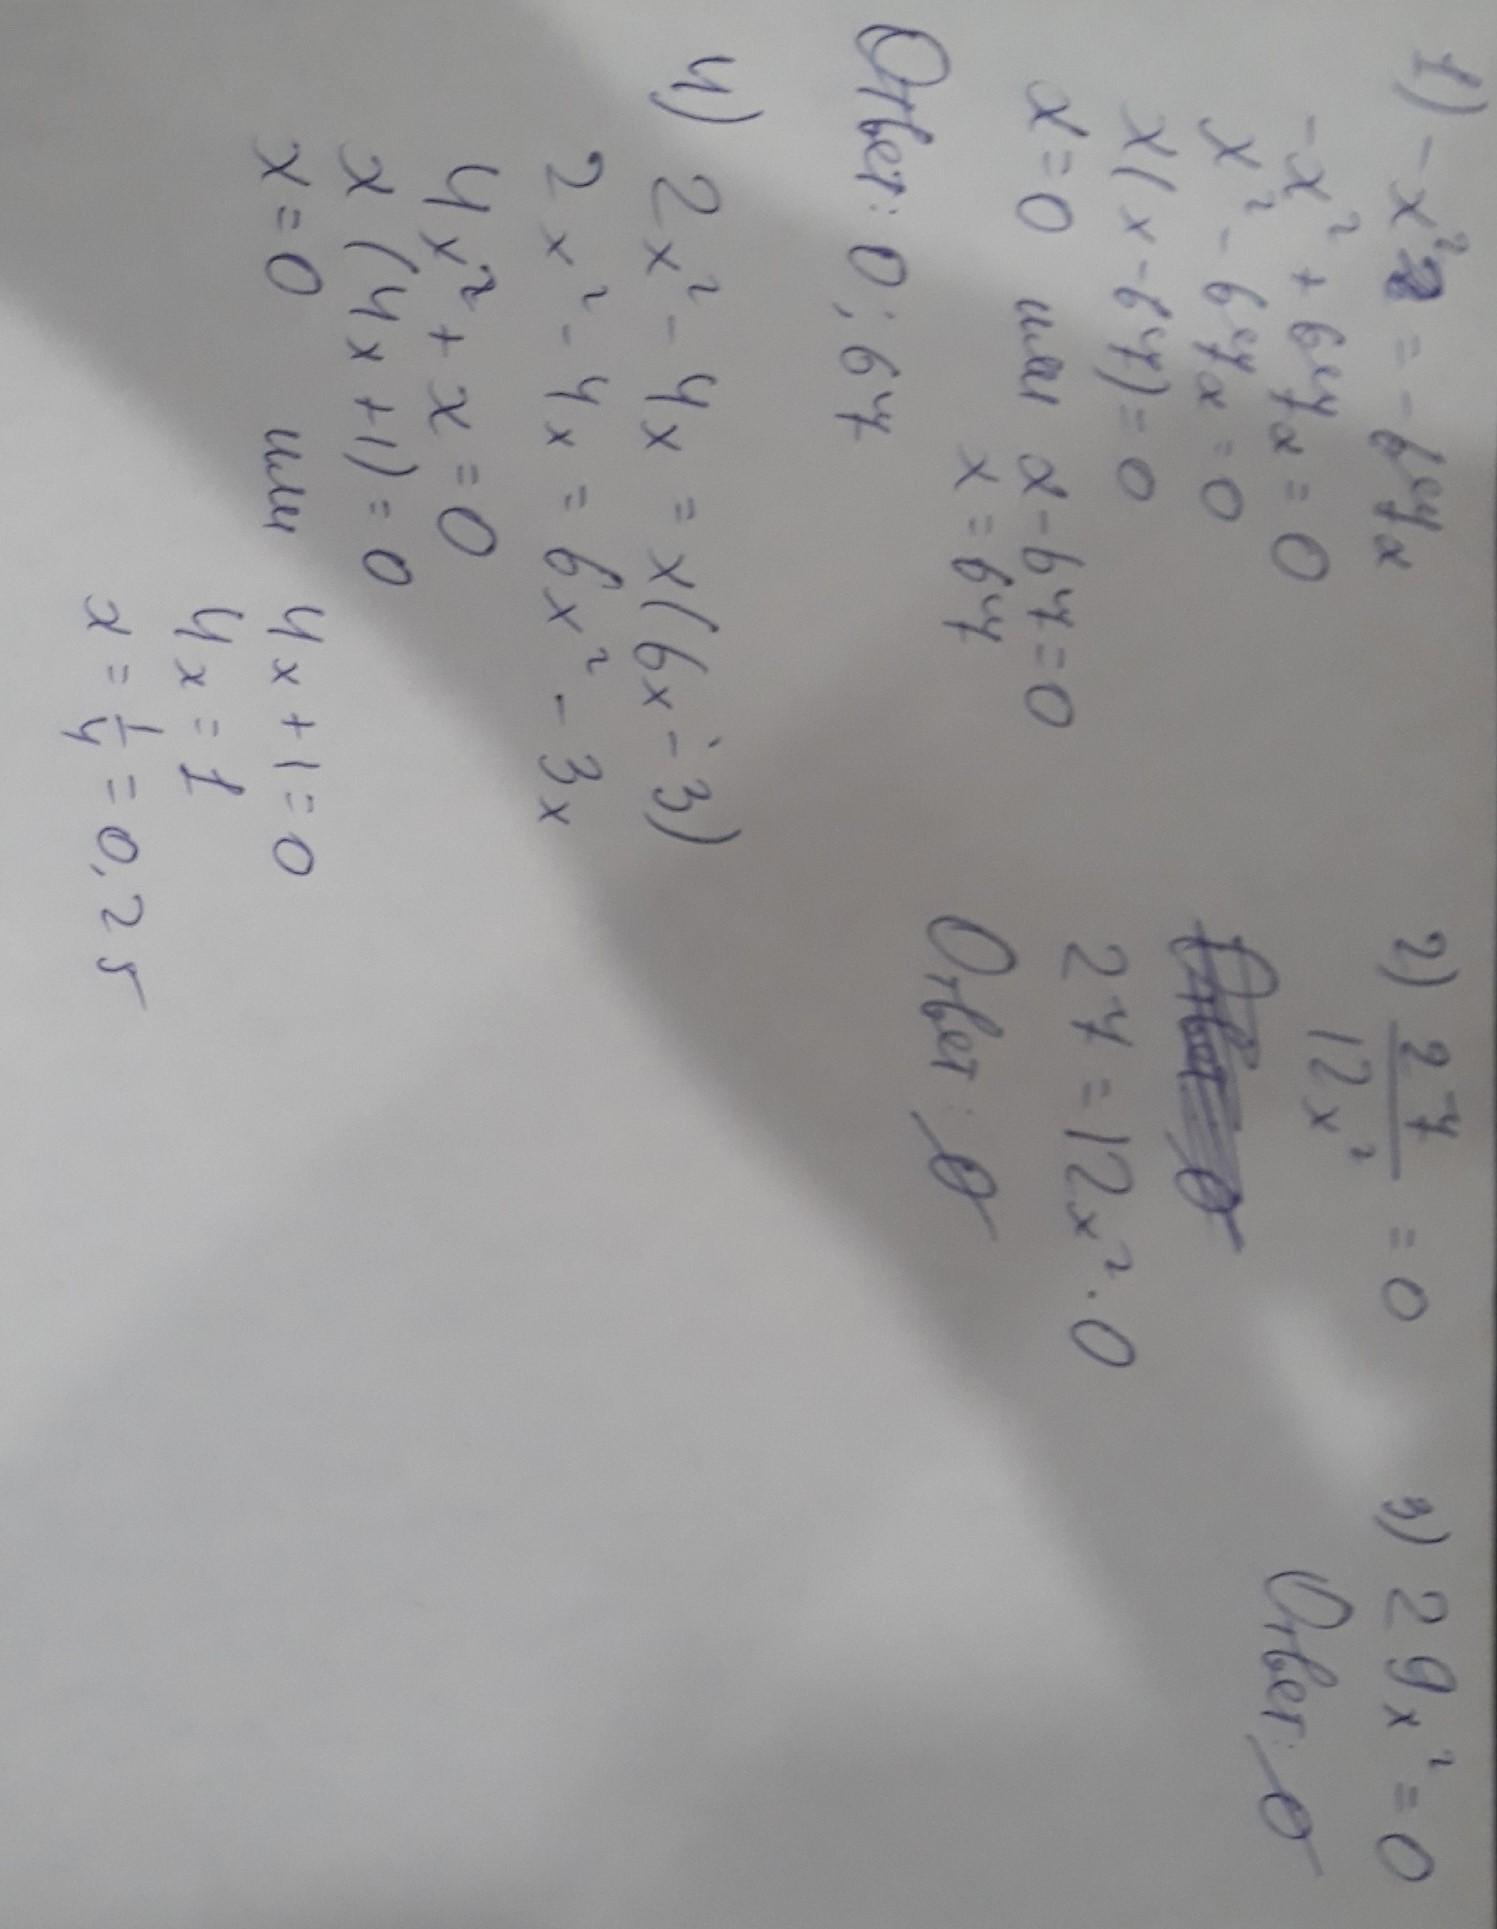 1) -x² = -64x
-x² + 64x = 0
x² - 64x = 0
x(x - 64) = 0
x = 0 или x - 64 = 0
x = 64
Ответ: 0; 64
2) 27/12x² = 0
27 = 12x² · 0
Ответ: ∅
3) 29x² = 0
Ответ: ∅
4) 2x² - 4x = x(6x - 3)
2x² - 4x = 6x² - 3x
4x² + x = 0
x(4x + 1) = 0
x = 0 или 4x + 1 = 0
4x = 1
x = 1/4 = 0,25